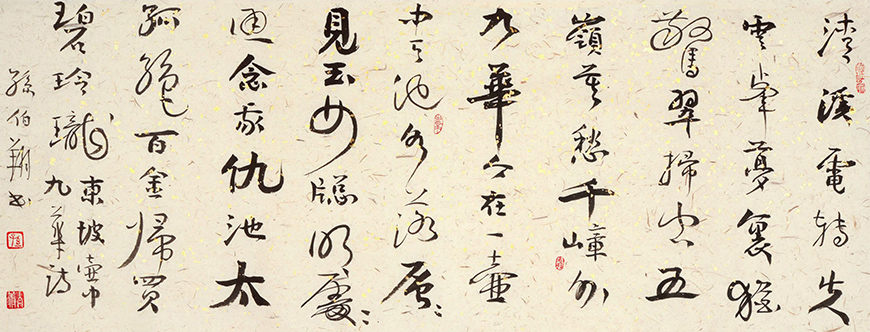 清溪電轉失
雲峯夢裏猶
驚翠掃空五
嶺莫愁千嶂外
九華今在一壺
中天池水落層〻
見玉女牕明處〻
通念我仇池太
孤絕百金歸買
碧玲瓏
東坡壺中
九華詩
孫伯翔書